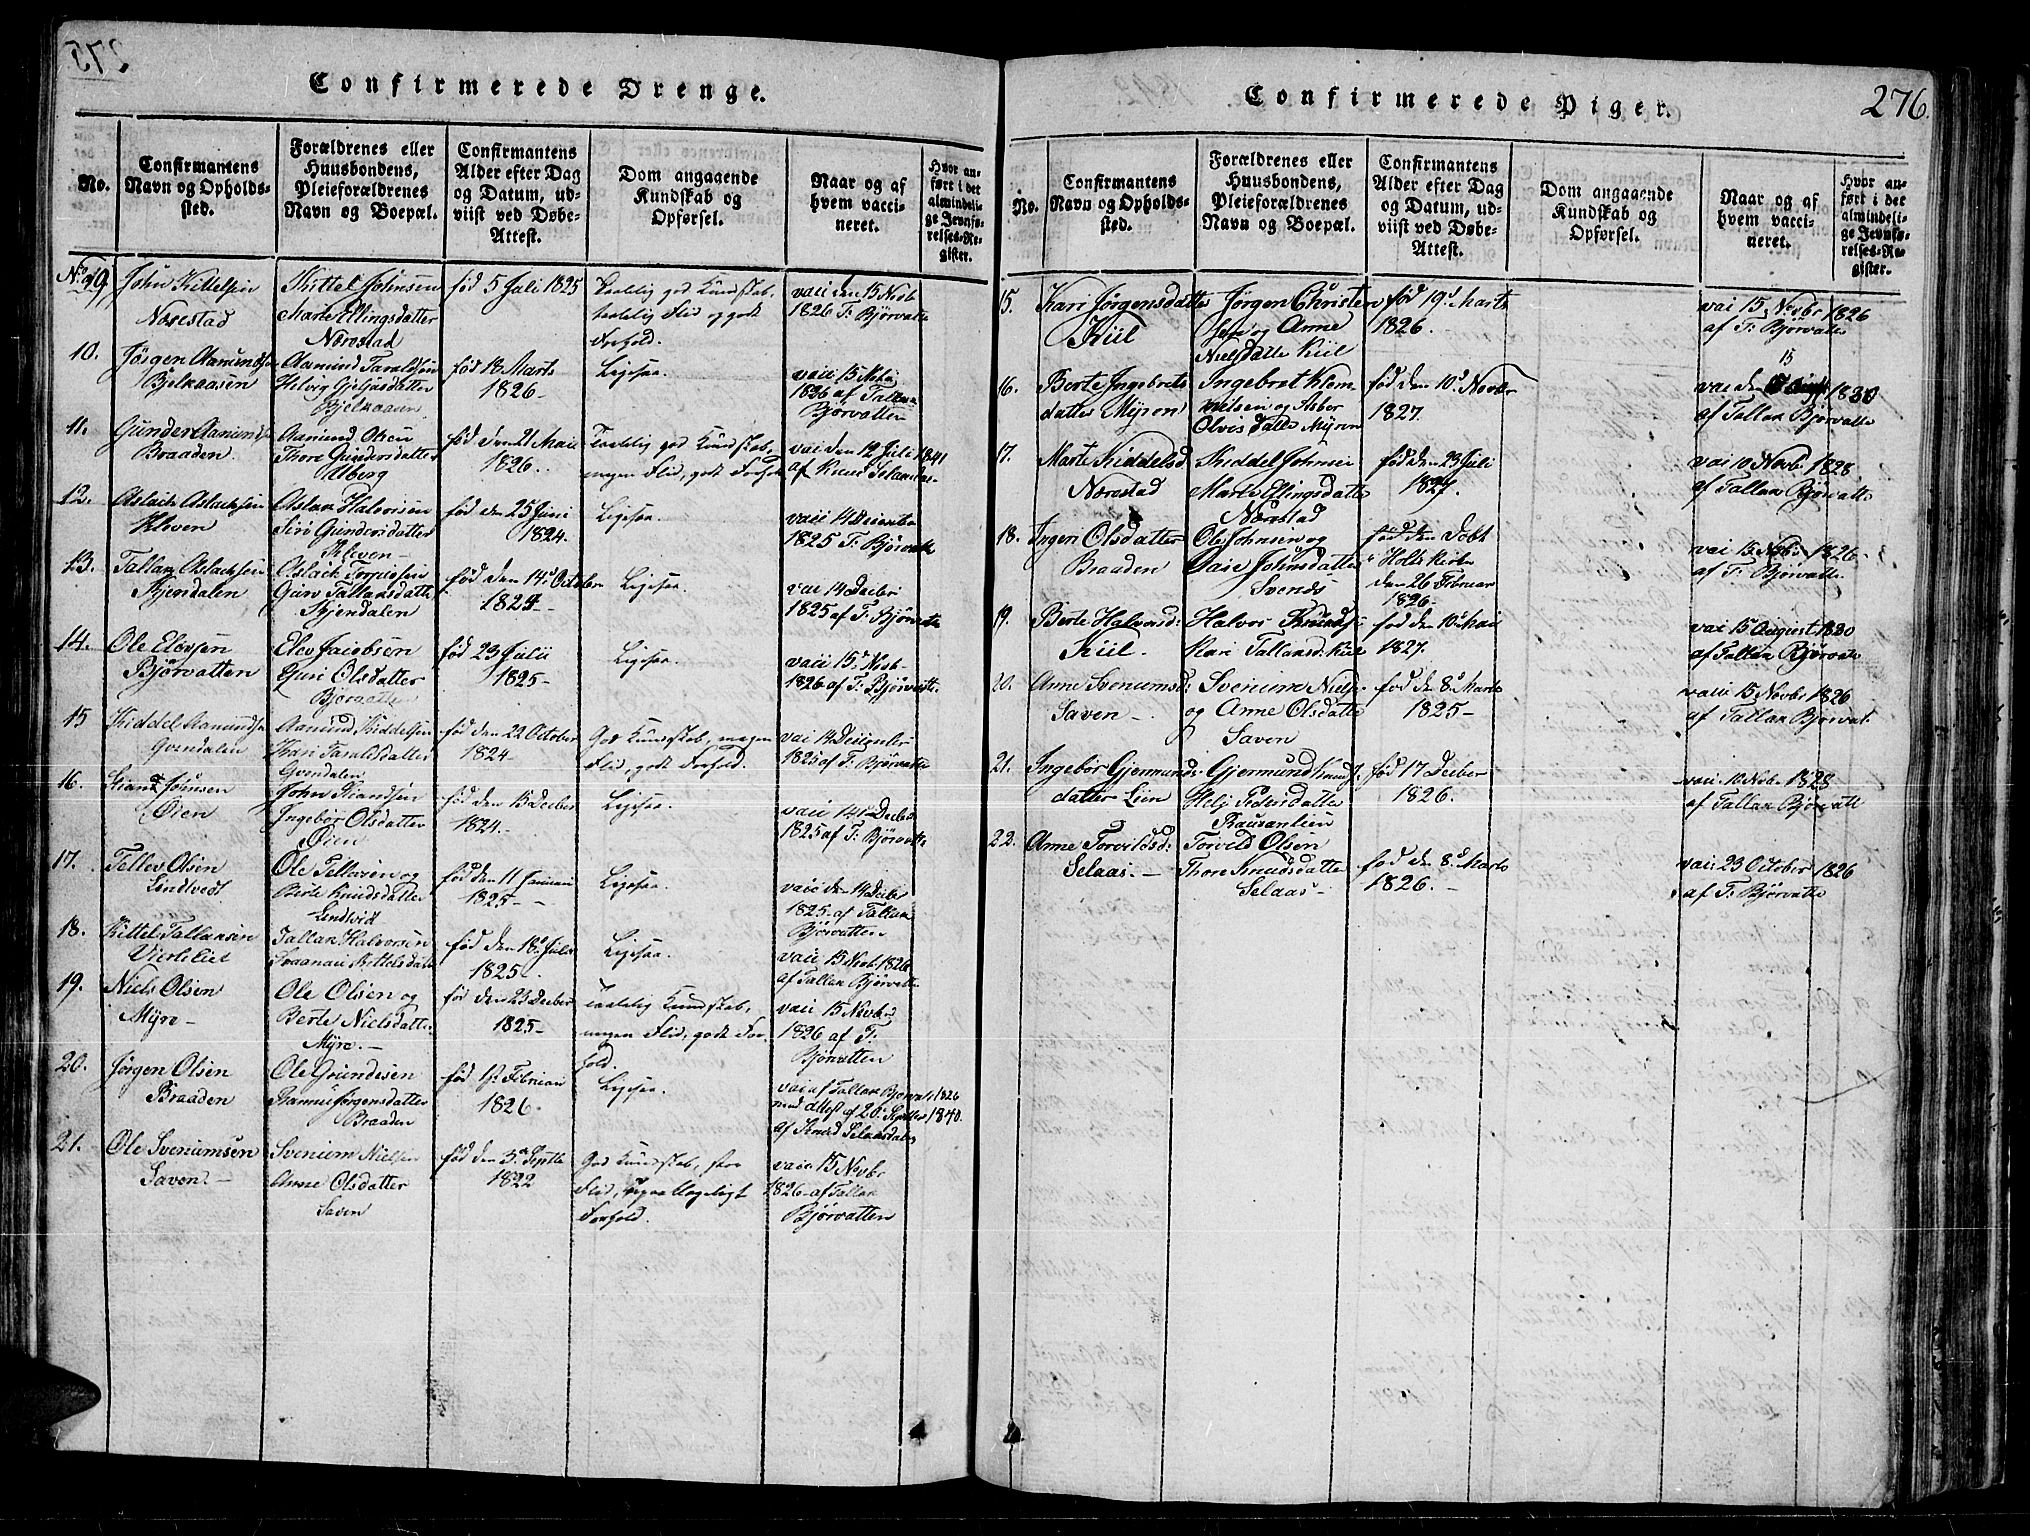 Confirmerede Drenge.
No.
Confirmantens Navn og Opholdssted.
Forældrenes eller Huusbondens, Pleieforældrenes Navn og Boepæl.
Confirmantens Alder efter Dag og Datum, udviist ved Døbe-Attest.
Dom angaaende Kundskab og Opførsel.
Naar og af hvem vaccineret.
Hvor anført i det almindelige Jevnførelses-Register.
No. 9. John Kittelsen
Næsestad
Kittel Johnsen
Marte Ellingsdatter
født 5 Juli 1825
vaii den 15 Novb
1826 T: Bjørvatte
10. Jörgen Aamunds
Bjelkaasen
Aamund Taraldsen
Bjelkaasen
født 18 Marts
1826 -
Ligesaa.
vaii 15 Novb
1826 af Tallak
Bjørvatten
11. Gunder Aamunds
Braaden
Aamund Olsen
Thore Gundersdatter
født den 21 Mai
1826.
vai den 12 Juli 1841
af Knud
12. Aslack Aslacksen
Kleven
Aslak Halvorsen
Siri Gundersdatter
Kleven -
født den 25 Juni
1824.
Ligesaa.
vaii 14 December
1825 T: Bjørvatte
13. Tallak Aslacksen
Skjendalen
Aslack
Guro Tallaksdatte
Skjendalen
fød den 14d October
1824 -
Ligesaa.
vai 14 Decbr
1825 af T: Bjørvatte
14. Ole Elevsen
Bjørvatten
Elev Jacobsen
Guri Olsdatter
Bjørvatten
fød 23 Julii
1825 -
Ligesaa.
vaii 15d Novb
1826 af T: Bjørvatte
15 Kiddel Aamunds
Gvendalen
Aamund Kiddelsen
Kari Taraldsdatter
Gvendalen
fød den 22 October
1824 -
God Kundskab, megen
Flid, godt Forhold.
vai 14 December
1825 af T: Bjørvatte
16. Johnsen
Øien
John
Ingebor Olsdatter
Øien
fød den 15 Decber
1824.
Ligesaa.
vaii 14 Decbr
1825 af T: Bjørvatte
17. Tellev Olsen
Lindtvedt
Ole Tellevsen og
Berte Knudsdatter
Lindtvid
fød den 11 Januari
1825 -
Ligesaa.
vaii den 14 Decber
1825 - af Tallak
Bjørvatten
18. Kittel Tallaksen
Tallak Halvorsen
fød den 18d Juli
1825.
Ligesaa.
vaii 15 Novb. 1826
af Tallak Bjørvatte
19. Niels Olsen
Myre -
Ole Olsen og
Berte Nielsdatte
Myre. -
fød den 23 Decber
1825 -
Taalelig Kundskab,
megen Flid, godt For-
hold.
vaii 15 Novbr
1826 af T:
Bjørvatten
20. Jørgen Olsen
Braaden
Ole Gundersen
Jørgensdatter
Braaden
fød 1st Februar
1826.
Ligesaa.
vai af Tallak Bjørvat 1826
med Attest af 20 Septbr 1840.
af Knud
21. Ole Sveniumsen
Saven -
Svenium Nielsen
Anne Olsdatter
Saven
fød den 3d Septbr
1822
God Kundskab, stor
Flid, upaaklageligt
Forhold.
vaii 15 Novbr
1826 - af Tallak
Bjørvatten
Confirmerede Piger.
276.
No.
Confirmantens Navn og Opholdssted.
Forældrenes eller Huusbondens, Pleieforældrenes Navn og Boepæl.
Confirmantens Alder efter Dag og Datum, udviist ved Døbe-Attest.
Dom angaaende Kundskab og Opførsel.
Naar og af hvem vaccineret.
Hvor anført i det almindelige Jevnførelses-Register.
15. Kari Jørgensdatter
Kiil
Jørgen Christen
sen og Anne
Nielsdatte Kiil
fød 19d Marts
1826.
vai 15 Novbr 1826
af T: Bjørvatte
16. Berte Ingebrets
datter Myren
Ingebret Klem
metsen og Asbor
Olvisdatte Myren
fød den 10d Novbr
1827.
vai den 15 1830
af Tallak Bjørvatte
17. Marte Kiddelsd
Nærestad
Kiddel Johnsen
Marte Ellingsdatte
Nærestad
fød den 23 Juli
1827.
vai 10 Novb. 1828
af Tallak Bjørvatte
18. Ingeri Olsdatter
Braaden
Ole Johnsen og
Johnsdatte
Svends
fød den Døbt
i Holts Kirke
den 26 Februar
1826 -
vai 15 Novbr 1826 -
af T: Bjørvatte
19. Berte Halvorsd:
Kiil.
Halvor Knuds
Kari Tallaksd: Kiil
fød den 10d Mai
1827.
vai 15 August 1830
af Tallak Bjørvatte
20. Anne Sveniumsd:
Saven -
Svenium Niels
og Anne Olsdatte
Saven
fød den 8d Marts
1825 -
vaii 15 Novbr 1826
af Tallak Bjørvat.
21. Ingebor Gjermunds
datter Lien
Gjermund Knuds
fød 17 Decber
1826.
vai 10 Novb. 1828
af Tallak Bjørvatt
22. Anne Torvildsd:
Selaas. -
Torvild Olsen
Thore Knudsdatte
Selaas -
fød den 8d Marts
1826. -
vaii 23 October 1826
af T: Bjørvatte